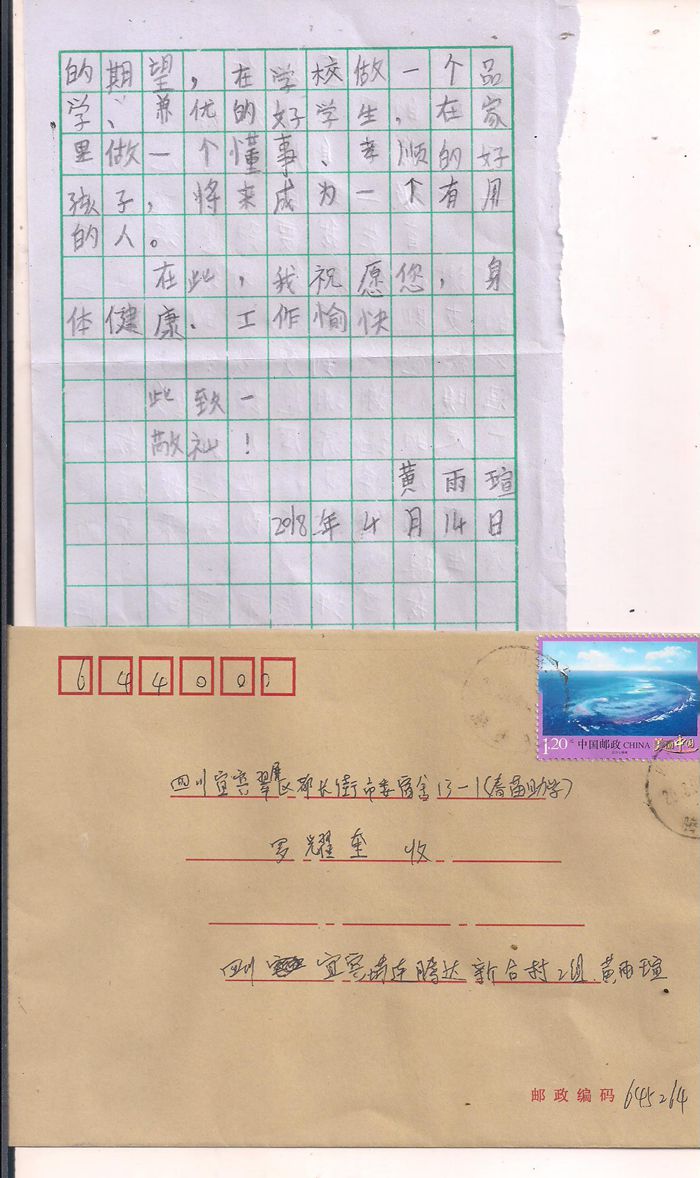 的期望，在学校做一个品
学、兼优的好学生，在家
里做一个懂事、孝顺的好
孩子，将来成为一个有用
的人。
在此，我祝愿您，身
体健康、工作愉快
此致
敬礼！
黄雨瑄
2018年4月14日
644000
1.20元 中国邮政 CHINA 美丽中国
四川宜宾翠屏区都长街市委宿舍13-1(春苗助学)
罗耀奎 收
四川 宜宾筠连腾达新合村2组 黄雨瑄
邮政编码 645264